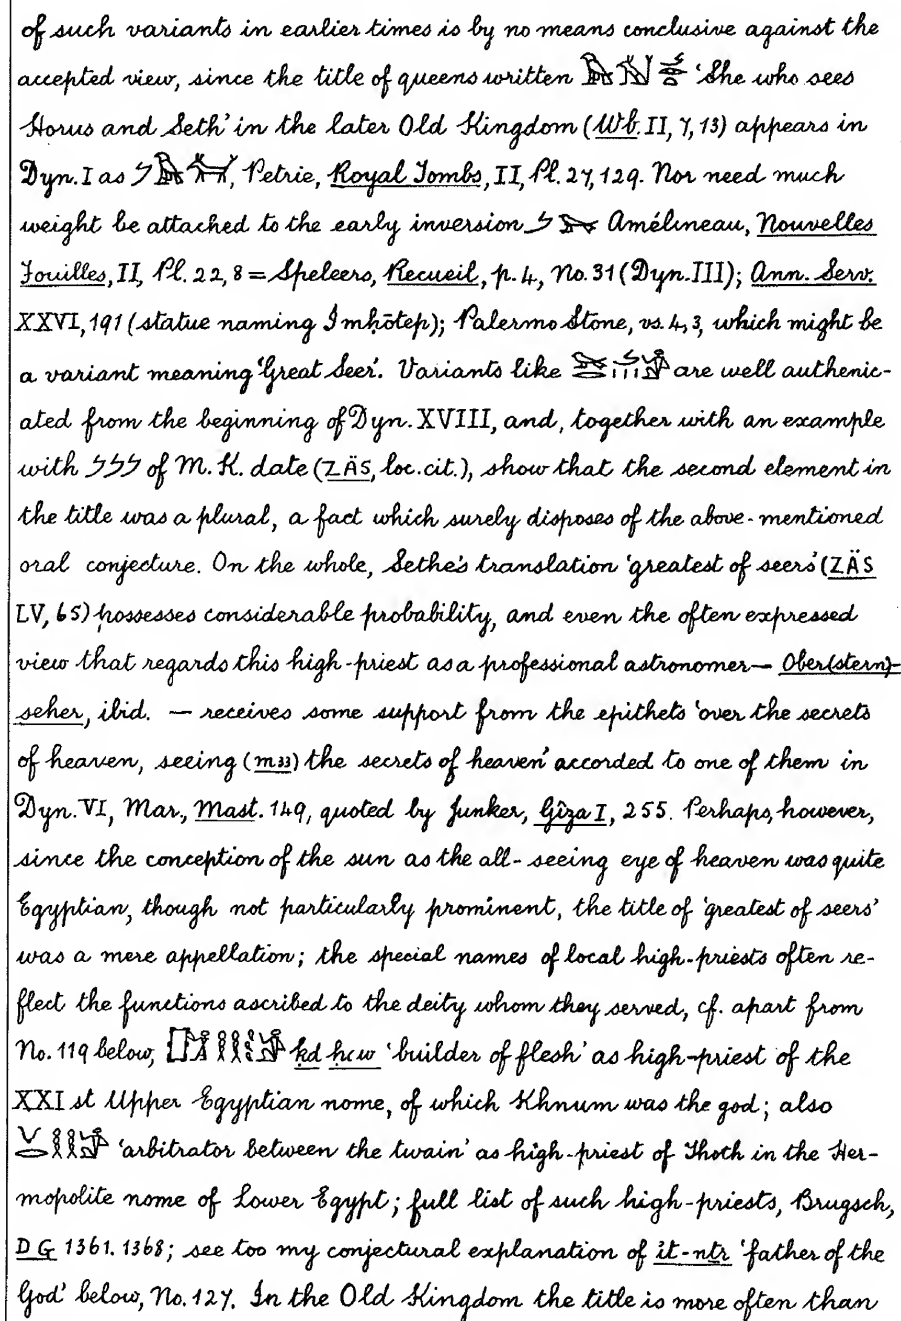 of such variants in earlier times is by no means conclusive against the
accepted view, since the title of queens written 'She who sees
Horus and Seth' in the later Old Kingdom (Wb. II, 7, 13) appears in
Dyn. I as , Petrie, Royal Tombs, II, Pl. 27, 129. Nor need much
weight be attached to the early inversion Amélineau, Nouvelles
Fouilles, II, Pl. 22, 8 = Speleers, Recueil, p. 4, No. 31 (Dyn. III); Ann. Serv.
XXVI, 191 (statue naming Imḥōtep); Palermo Stone, vs. 4, 3, which might be
a variant meaning 'Great Seer'. Variants like are well authenic-
ated from the beginning of Dyn. XVIII, and, together with an example
with of M. K. date (ZÄS, loc. cit.), show that the second element in
the title was a plural, a fact which surely disposes of the above-mentioned
oral conjecture. On the whole, Sethe's translation 'greatest of seers' (ZÄS
LV, 65) possesses considerable probability, and even the often expressed
view that regards this high-priest as a professional astronomer — Ober(stern)-
seher, ibid. — receives some support from the epithets 'over the secrets
of heaven, seeing (mꜣꜣ) the secrets of heaven' accorded to one of them in
Dyn. VI, Mar., Mast. 149, quoted by Junker, Gîza I, 255. Perhaps, however,
since the conception of the sun as the all-seeing eye of heaven was quite
Egyptian, though not particularly prominent, the title of 'greatest of seers'
was a mere appellation; the special names of local high-priests often re-
flect the functions ascribed to the deity whom they served, cf. apart from
No. 119 below, ḳd ḥꜥw 'builder of flesh' as high-priest of the
XXI st Upper Egyptian nome, of which Khnum was the god; also
'arbitrator between the twain' as high-priest of Thoth in the Her-
mopolite nome of Lower Egypt; full list of such high-priests, Brugsch,
DG 1361. 1368; see too my conjectural explanation of it-nṯr 'father of the
God' below, No. 127. In the Old Kingdom the title is more often than